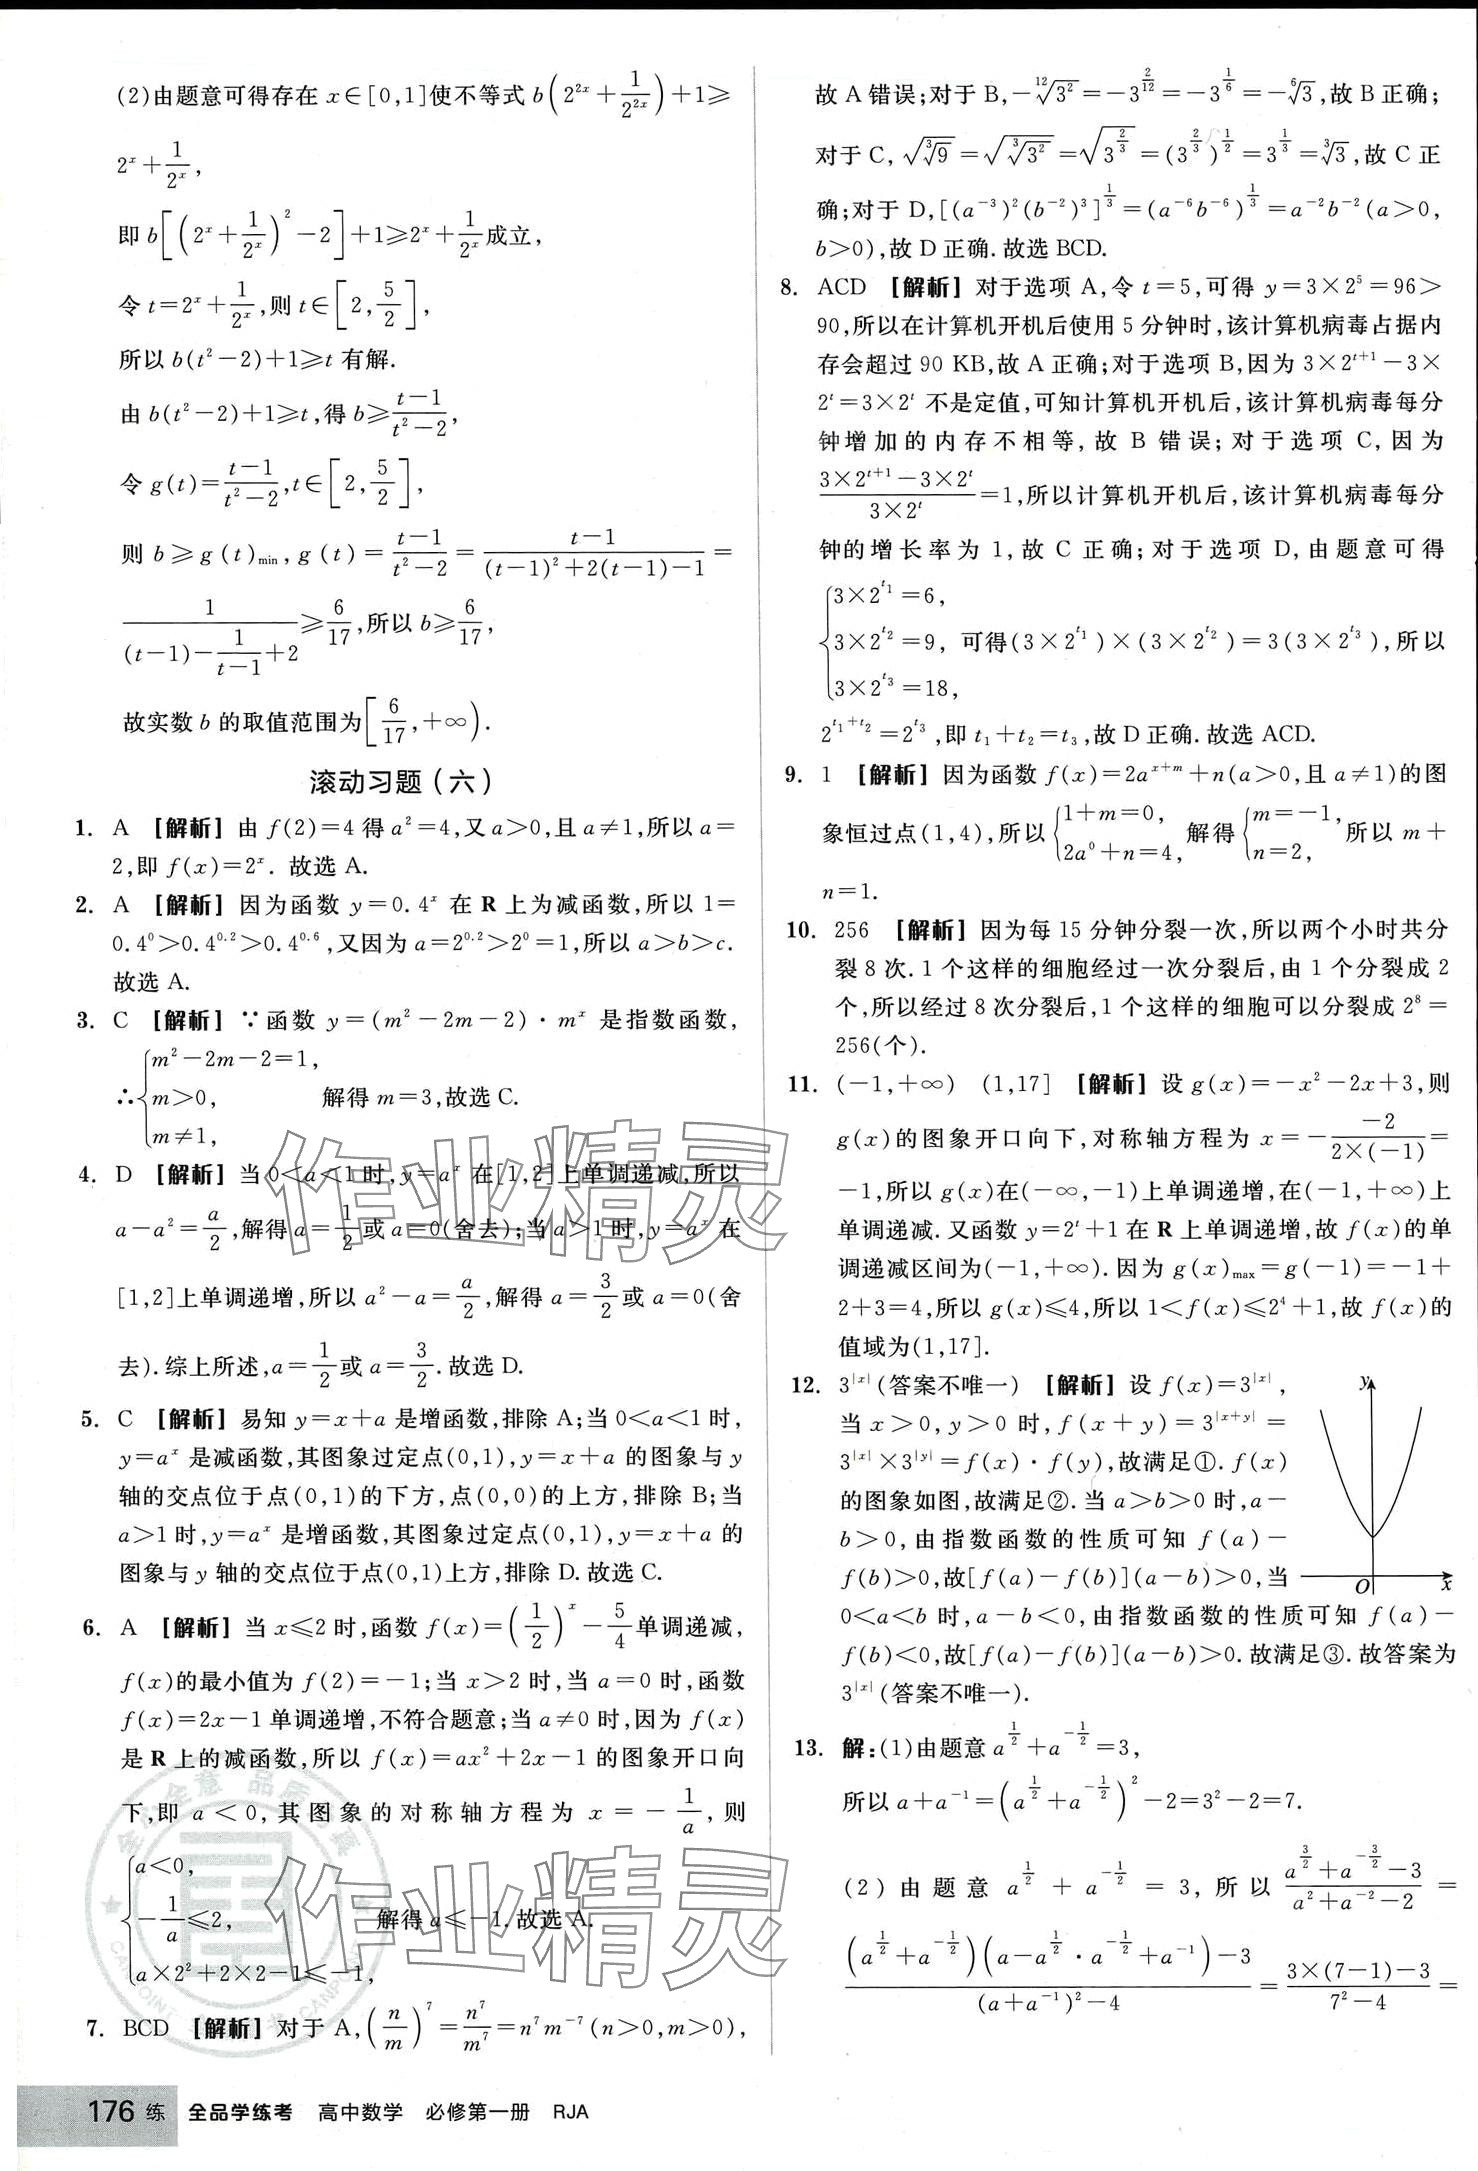 (2)由题意可得存在 x∈[0,1]使不等式 b(2^{2x}+1/2^{2x})+1≥
2^x+1/2^x,
即 b[(2^x+1/2^x)^2-2]+1≥2^x+1/2^x成立,
令 t=2^x+1/2^x,则 t∈[2,5/2],
所以 b(t^2-2)+1≥t 有解.
由 b(t^2-2)+1≥t,得 b≥(t-1)/(t^2-2),
令 g(t)=(t-1)/(t^2-2),t∈[2,5/2],
则 b≥g(t)_{min},g(t)=(t-1)/(t^2-2)=(t-1)/((t-1)^2+2(t-1)-1)=
1/((t-1)-1/(t-1)+2)≥6/17,所以 b≥6/17,
故实数 b 的取值范围为[6/17,+∞).
滚动习题(六)
1. A [解析] 由 f(2)=4 得 a^2=4,又 a>0,且 a≠1,所以 a=
2,即 f(x)=2^x. 故选 A.
2. A [解析] 因为函数 y=0.4^x 在 R 上为减函数,所以 1=
0.4^0>0.4^{0.2}>0.4^{0.6},又因为 a=2^{0.2}>2^0=1,所以 a>b>c.
故选 A.
3. C [解析] ∵函数 y=(m^2-2m-2)·m^x 是指数函数,
∴{m^2-2m-2=1,
m>0, 解得 m=3,故选 C.
m≠1,
4. D [解析] 当 0<a<1 时,y=a^x 在[1,2]上单调递减,所以
a-a^2=a/2,解得 a=1/2或 a=0(舍去);当 a>1 时,y=a^x 在
[1,2]上单调递增,所以 a^2-a=a/2,解得 a=3/2或 a=0(舍
去).综上所述,a=1/2或 a=3/2.故选 D.
5. C [解析] 易知 y=x+a 是增函数,排除 A;当 0<a<1 时,
y=a^x 是减函数,其图象过定点(0,1),y=x+a 的图象与 y
轴的交点位于点(0,1)的下方,点(0,0)的上方,排除 B;当
a>1 时,y=a^x 是增函数,其图象过定点(0,1),y=x+a 的
图象与 y 轴的交点位于点(0,1)上方,排除 D.故选 C.
6. A [解析] 当 x≤2 时,函数 f(x)=(1/2)^x-5/4单调递减,
f(x)的最小值为 f(2)=-1;当 x>2 时,当 a=0 时,函数
f(x)=2x-1 单调递增,不符合题意;当 a≠0 时,因为 f(x)
是 R 上的减函数,所以 f(x)=ax^2+2x-1 的图象开口向
下,即 a<0,其图象的对称轴方程为 x=-1/a,则
{a<0,
-1/a≤2, 解得 a≤-1.故选 A.
a×2^2+2×2-1≤-1,
7. BCD [解析] 对于 A,(n/m)^7=n^7/m^7=n^7m^{-7}(n>0,m>0),
176 练 全品学练考 高中数学 必修第一册 RJA
故 A 错误;对于 B,-\sqrt[12]{3^2}=-3^{2/12}=-3^{1/6}=-\sqrt[6]{3},故 B 正确;
对于 C,\sqrt{\sqrt[3]{9}}=\sqrt{\sqrt[3]{3^2}}=\sqrt{3^{2/3}}=(3^{2/3})^{1/2}=3^{1/3}=\sqrt[3]{3},故 C 正
确;对于 D,[(a^{-3})^2(b^{-2})^3]^{1/3}=(a^{-6}b^{-6})^{1/3}=a^{-2}b^{-2}(a>0,
b>0),故 D 正确.故选 BCD.
8. ACD [解析] 对于选项 A,令 t=5,可得 y=3×2^5=96>
90,所以在计算机开机后使用 5 分钟时,该计算机病毒占据内
存会超过 90 KB,故 A 正确;对于选项 B,因为 3×2^{t+1}-3×
2^t=3×2^t 不是定值,可知计算机开机后,该计算机病毒每分
钟增加的内存不相等,故 B 错误;对于选项 C,因为
(3×2^{t+1}-3×2^t)/(3×2^t)=1,所以计算机开机后,该计算机病毒每分
钟的增长率为 1,故 C 正确;对于选项 D,由题意可得
{3×2^{t_1}=6,
3×2^{t_2}=9, 可得(3×2^{t_1})×(3×2^{t_2})=3(3×2^{t_3}),所以
3×2^{t_3}=18,
2^{t_1+t_2}=2^{t_3},即 t_1+t_2=t_3,故 D 正确.故选 ACD.
9. 1 [解析] 因为函数 f(x)=2a^{x+m}+n(a>0,且 a≠1)的图
象恒过点(1,4),所以{1+m=0, 2a^0+n=4, 解得{m=-1, n=2, 所以 m+
n=1.
10. 256 [解析] 因为每 15 分钟分裂一次,所以两个小时共分
裂 8 次.1 个这样的细胞经过一次分裂后,由 1 个分裂成 2
个,所以经过 8 次分裂后,1 个这样的细胞可以分裂成 2^8=
256(个).
11. (-1,+∞) (1,17] [解析] 设 g(x)=-x^2-2x+3,则
g(x)的图象开口向下,对称轴方程为 x=-(-2)/(2×(-1))=
-1,所以 g(x)在(-∞,-1)上单调递增,在(-1,+∞)上
单调递减.又函数 y=2^t+1 在 R 上单调递增,故 f(x)的单
调递减区间为(-1,+∞).因为 g(x)_{max}=g(-1)=-1+
2+3=4,所以 g(x)≤4,所以 1<f(x)≤2^4+1,故 f(x)的
值域为(1,17].
12. 3^{|x|}(答案不唯一) [解析] 设 f(x)=3^{|x|},
当 x>0,y>0 时,f(x+y)=3^{|x+y|}=
3^{|x|}×3^{|y|}=f(x)·f(y),故满足①.f(x)
的图象如图,故满足②.当 a>b>0 时,a-
b>0,由指数函数的性质可知 f(a)-
f(b)>0,故[f(a)-f(b)](a-b)>0,当
0<a<b 时,a-b<0,由指数函数的性质可知 f(a)-
f(b)<0,故[f(a)-f(b)](a-b)>0.故满足③.故答案为
3^{|x|}(答案不唯一).
y
O
x
13. 解:(1)由题意 a^{1/2}+a^{-1/2}=3,
所以 a+a^{-1}=(a^{1/2}+a^{-1/2})^2-2=3^2-2=7.
(2)由题意 a^{1/2}+a^{-1/2}=3,所以(a^{3/2}+a^{-3/2}-3)/(a^2+a^{-2}-2)=
((a^{1/2}+a^{-1/2})(a-a^{1/2}·a^{-1/2}+a^{-1})-3)/((a+a^{-1})^2-4)=(3×(7-1)-3)/(7^2-4)=
作业精灵
作业精灵